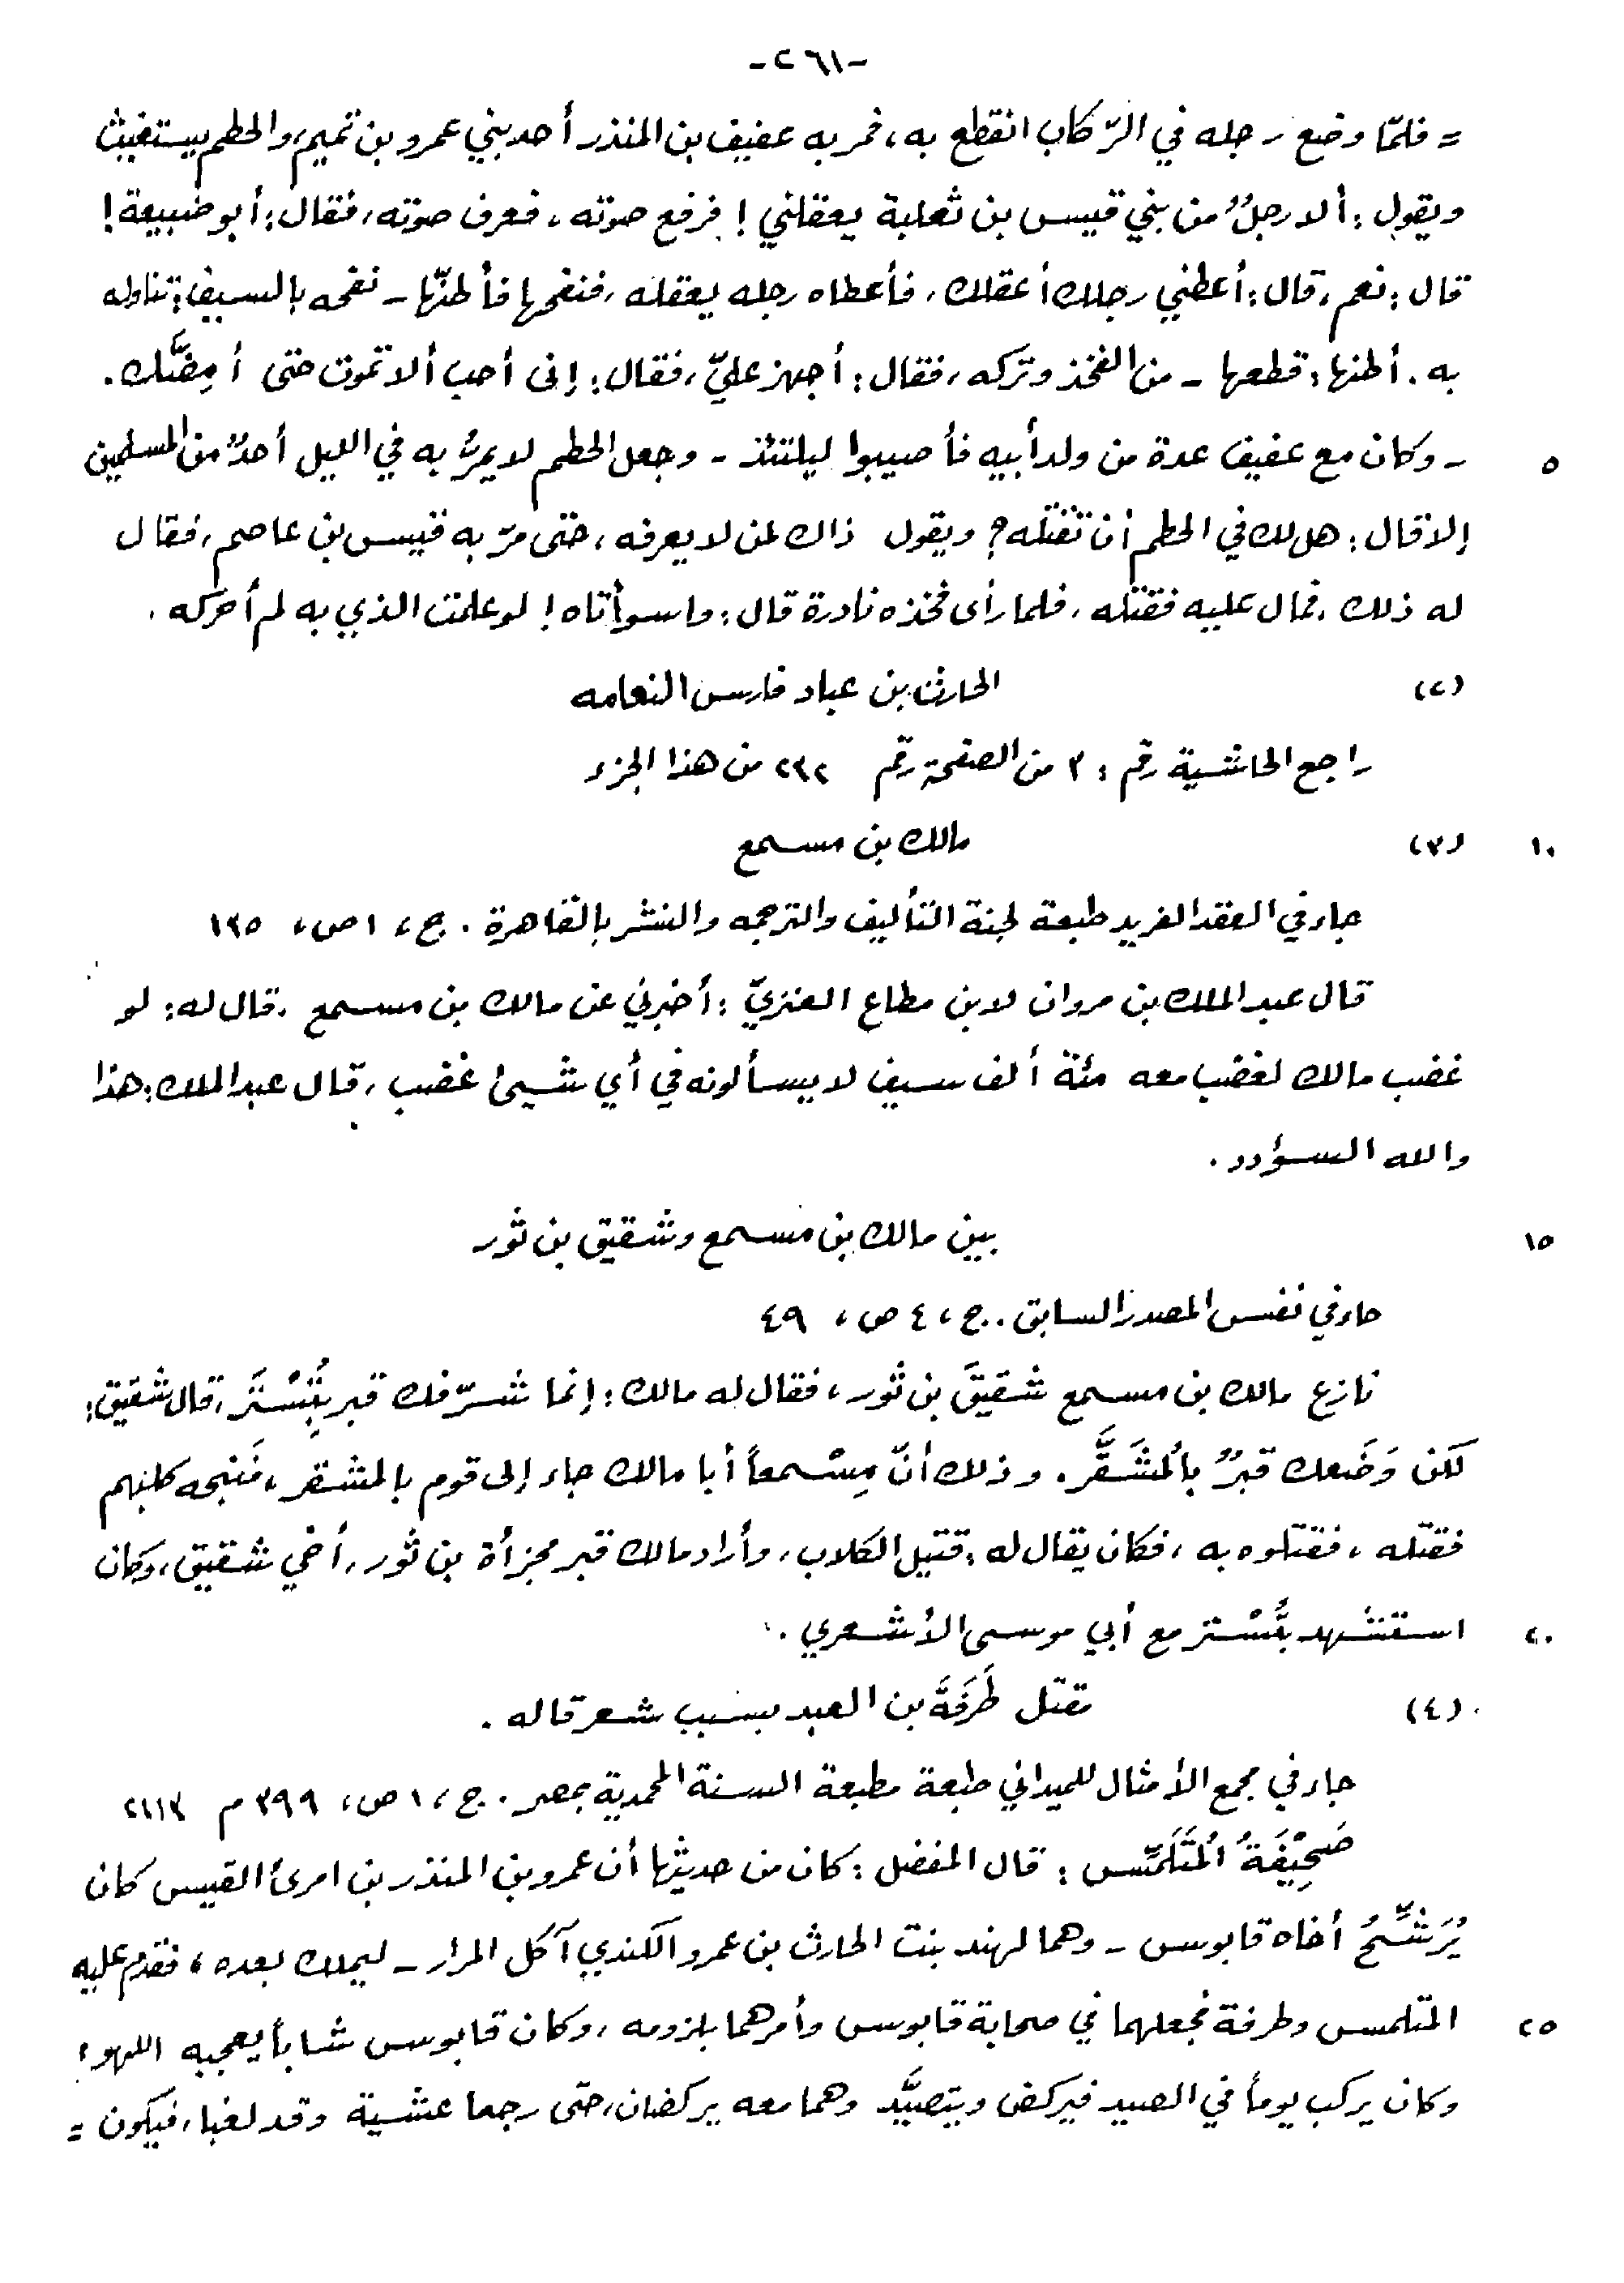 -٢٦١-
= فلمّا وضع رجله في الرّكاب انقطع به، فمر به عفيف بن المنذر أحد بني عمرو بن تميم، والحطم يستغيث
ويقول: ألا رجلٌ من بني قيس بن ثعلبة يعقلني! فرفع صوته، فعرف صوته، فقال: أبو ضبيعة!
قال: نعم، قال: أعطني رجلك أعقلك، فأعطاه رجله يعقله، فنفحها فأطنّها - نفحه بالسيف: تناوله
به. أطنها: قطعها - من الفخذ وتركه، فقال: أجهز عليّ، فقال: إنى أحب ألا تموت حتى أمِضَّك.
٥ - وكان مع عفيف عدة من ولد أبيه فأصيبوا ليلتئذ - وجعل الحطم لا يمرُّ به في الليل أحدٌ من المسلمين
إلا قال: هل لك في الحطم أن تقتله؟ ويقول ذاك لمن لا يعرفه، حتى مرّ به قيس بن عاصم، فقال
له ذلك، فمال عليه فقتله، فلما رأى فخذه نادرة قال: واسوأتاه! لو علمت الذي به لم أحركه.
(٢) الحارث بن عباد فارس النعامه
راجع الحاشية رقم: ٣ من الصفحة رقم ٢٣٢ من هذا الجزء
١٠ (٣) مالك بن مسمع
جاء في العقد الفريد طبعة لجنة التأليف والترجمه والنشر بالقاهرة. ج، ١ ص، ١٣٥
قال عبد الملك بن مروان لابن مطاع العنزيّ: أخبرني عن مالك بن مسمع، قال له: لو
غضب مالك لغضب معه مئة ألف سيف لا يسألونه في أي شيئ غضب، قال عبد الملك: هذا
والله السؤدد.
١٥ بين مالك بن مسمع وشقيق بن ثور
جاء في نفس المصدر السابق. ج، ٤ ص، ٤٩
نازع مالك بن مسمع شقيقَ بن ثور، فقال له مالك: إنما شرّفك قبر بِتُسْتَر، قال شقيق:
لكن وَضَعك قبرٌ بالمُشَقَّر. وذلك أنّ مِسْمعاً أبا مالك جاء إلى قوم بالمشقر، فَنبحه كلبهم
فقتله، فقتلوه به، فكان يقال له: قتيل الكلاب، وأراد مالك قبر مجزأة بن ثور، أخي شقيق، وكان
٢٠ استشهد بتُسْتر مع أبي موسى الأشعري.
(٤) مقتل طَرَفَةَ بن العبد بسبب شعر قاله.
جاء في مجمع الأمثال للميداني طبعة مطبعة السنة المحمدية بمصر. ج، ١ ص، ٣٩٩ م ٢١١٣
صَحِيْفَةُ المُتَلَمِّس: قال المفضل: كان من حديثها أن عمرو بن المنذر بن امرئ القيس كان
يُرَشِّحُ أخاه قابوس - وهما لهند بنت الحارث بن عمرو الكندي آكل المرار - ليملك بعده، فقدم عليه
٢٥ المتلمس وطرفة فجعلهما في صحابة قابوس وأمرهما بلزومه، وكان قابوس شاباً يعجبه اللهو،
وكان يركب يوماً في الصيد فيركض ويتصيَّد وهما معه يركضان، حتى رجعا عشية وقد لغبا، فيكون =